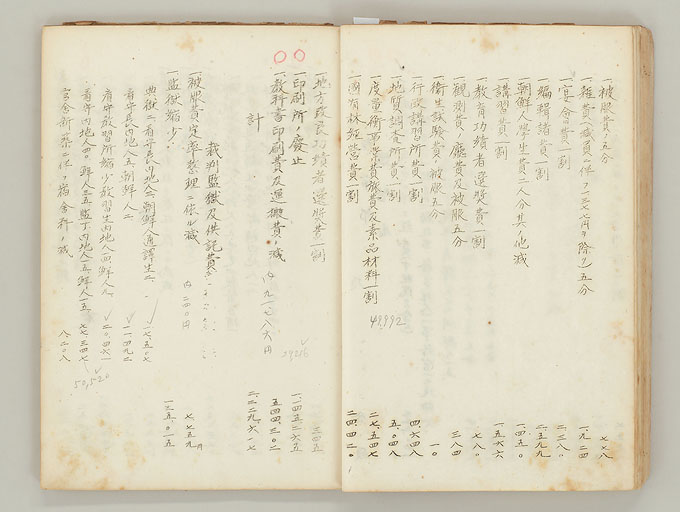 一、被服費ノ五分 七七八
一、雑費(減員ニ伴フ一、三七七円ヲ除ク)五分 一、九二四
一、宴会費一割 二、三八〇
一、編輯諸費一割 二、五九九
一、朝鮮人学生費二人分其ノ他減 一、四五〇
一、講習費一割 一、五六六
一、教育功績者選奨費一割 七八〇
一、観測費ノ廳費及被服五分 三八四
一、衛生試験費ノ被服五分 一〇
一、行政講習所費一割 四、六四八
一、地質調査所費一割 五、〇四八
一、度量衡事業費旅費及素品材料一割 二七、五四七
49,992
一、国有林経営費一割 二四、四二〇
一、地方改良功績者選奨費一割 三四五
一、印刷所ノ廃止 一、一四五、二六五
一、教科書印刷費及運搬費ノ減 内九一、七八六円 五四四、三〇二
計 二、二二九、六一七
裁判監獄及供託費
一、被服費定率整理ニ依ル減 内二四〇円 七、七五九円
一、監獄縮少 一三五、〇一五
典獄二 看守長内地人六 朝鮮人通譯生二 一七、五〇七
看守長内地人五 朝鮮人二 一一、四九二
看守教習所縮少教習生内地人四〇 鮮人九 二〇、四六一
看守内地人四〇 鮮人三五 監丁内地人五 鮮人一五 七七、三四七
53,520
官舎新築ニ伴フ宿舎料ノ減 八、二〇八